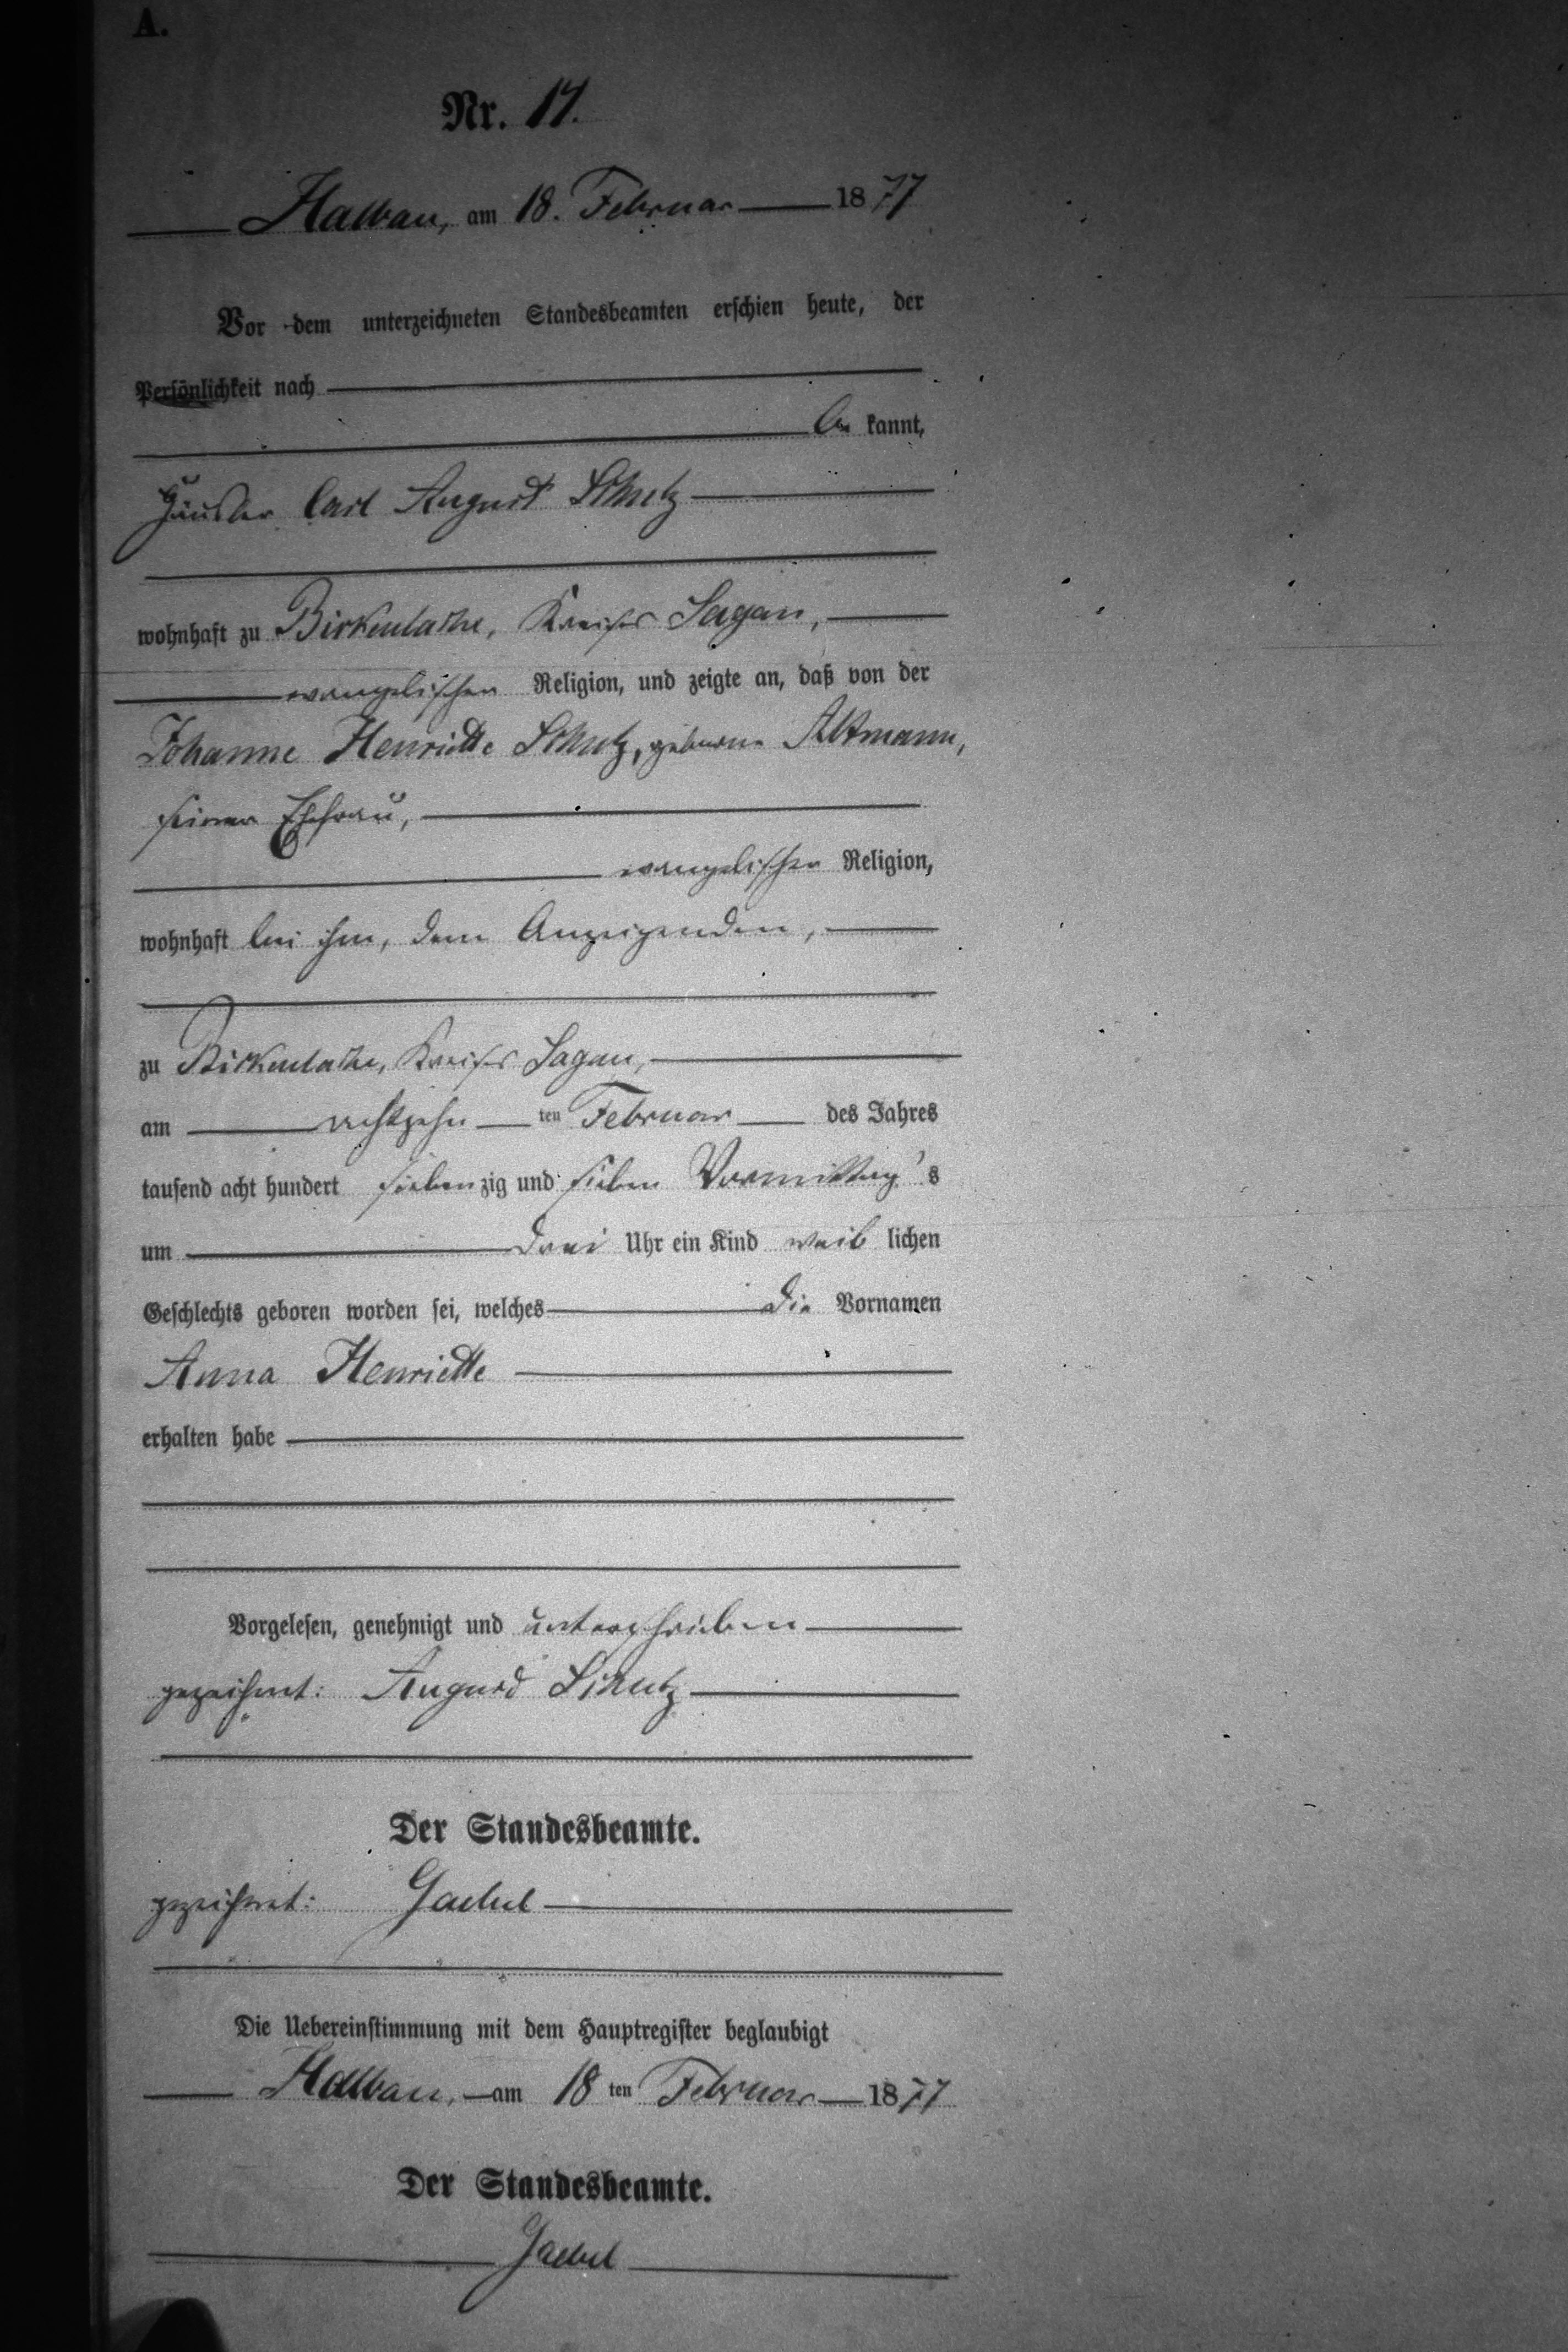 A.
Nr. 17.
Halbau, am 18. Februar 1877
Vor dem unterzeichneten Standesbeamten erschien heute, der
Persönlichkeit nach
be kannt,
Häusler Carl August Schutz
wohnhaft zu Birkenlache, Kreises Sagan,
evangelischer Religion, und zeigte an, daß von der
Johanne Henriette Schutz, geborene Altmann,
seiner Ehefrau,
evangelischer Religion,
wohnhaft bei ihm, dem Anzeigenden,
zu Birkenlache, Kreises Sagan,
am achtzehn ten Februar des Jahres
tausend acht hundert siebenzig und sieben Vormittag's
um drei Uhr ein Kind weib lichen
Geschlechts geboren worden sei, welches die Vornamen
Anna Henriette
erhalten habe
Vorgelesen, genehmigt und unterschrieben
gezeichnet: Augusd Schutz
Der Standesbeamte.
gezeichnet: Gaebel
Die Uebereinstimmung mit dem Hauptregister beglaubigt
Halbau, am 18 ten Februar 1877
Der Standesbeamte.
Gaebel